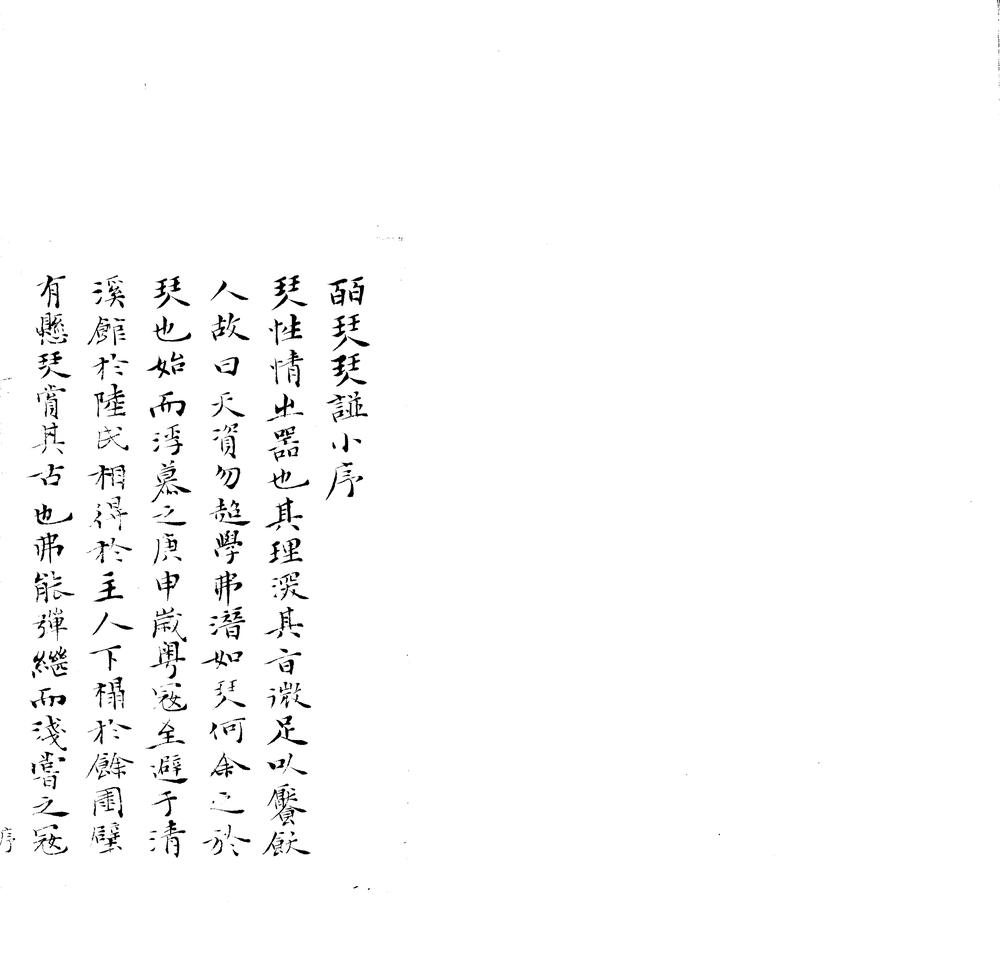 皕珡珡諩小序
珡性情㞢器也其理深其旨微足以饜飫
人故曰天資勿超學弗濳如珡何余之於
珡也始而浮慕之庚申嵗粤寇至避于清
溪館於陸氏相得於主人下榻於餘圃壁
有懸珡賞其古也弗能彈繼而淺嘗之寇
序